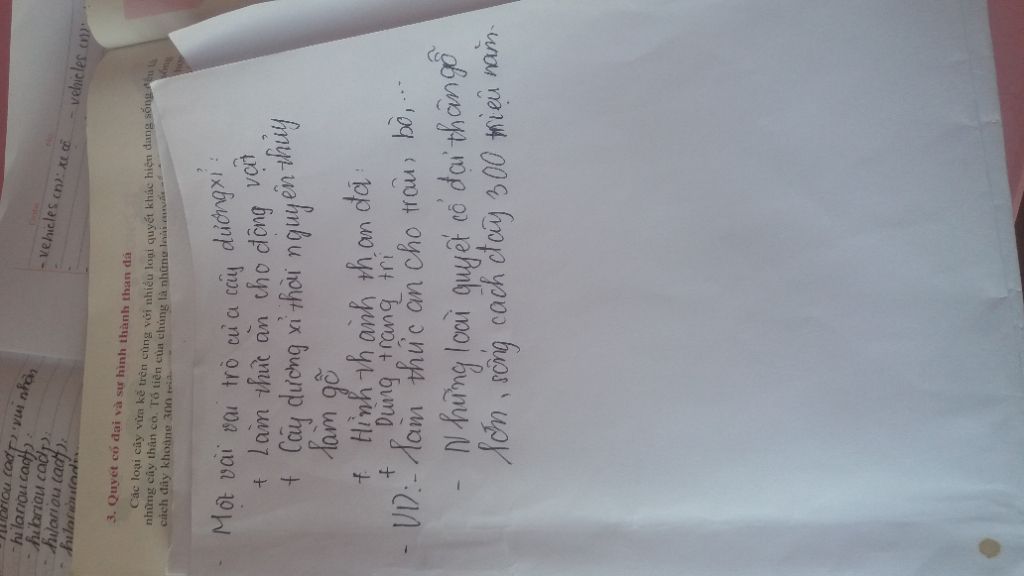 - vehicles (n): xe cộ
- vehicles (n):
- hilarious (adj): vui nhộn
- hilarious (adj):
- hilarious (adj):
- hilarious (adj):
- hilarious (adj):
3. Quyết cổ đại và sự hình thành than đá
Các loại cây vừa kể trên cùng với nhiều loại quyết khác hiện đang sống đều là
những cây thân cỏ. Tổ tiên của chúng là những loài quyết
cách đây khoảng 300
- Một vài vai trò của cây dương xỉ:
+ Làm thức ăn cho động vật
+ Cây dương xỉ thời nguyên thủy
làm gỗ
+ Hình thành than đá:
+ Dùng trang trí
- VD: - làm thức ăn cho trâu, bò,...
- Những loài quyết cổ đại thân gỗ
lớn, sống cách đây 300 triệu năm.